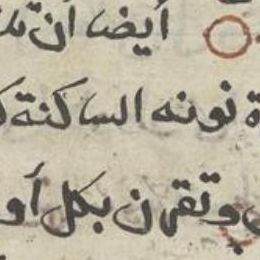 أيضا أن
نونه الساكنة
وتقرن بكل أو